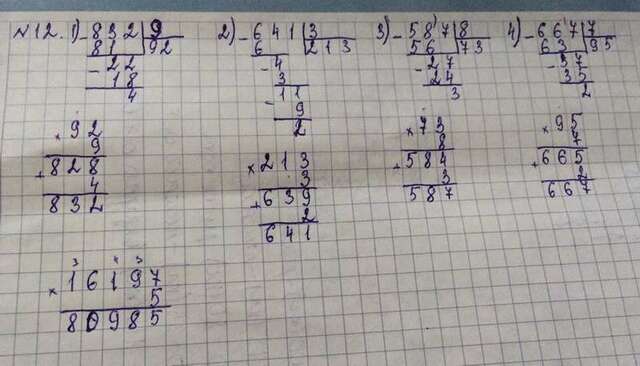 №12. 1) - 832 | 9 2) - 641 | 3 3) - 587 | 8 4) - 667 | 7
81 | 92 6 | 213 56 | 73 63 | 95
- 22 - 4 - 27 - 37
18 3 24 35
4 - 11 3 2
9
2
× 92 × 213 × 73 × 95
9 3 8 7
+ 828 + 639 + 584 + 665
4 2 3 2
832 641 587 667
3 4 3
× 16197
5
80985